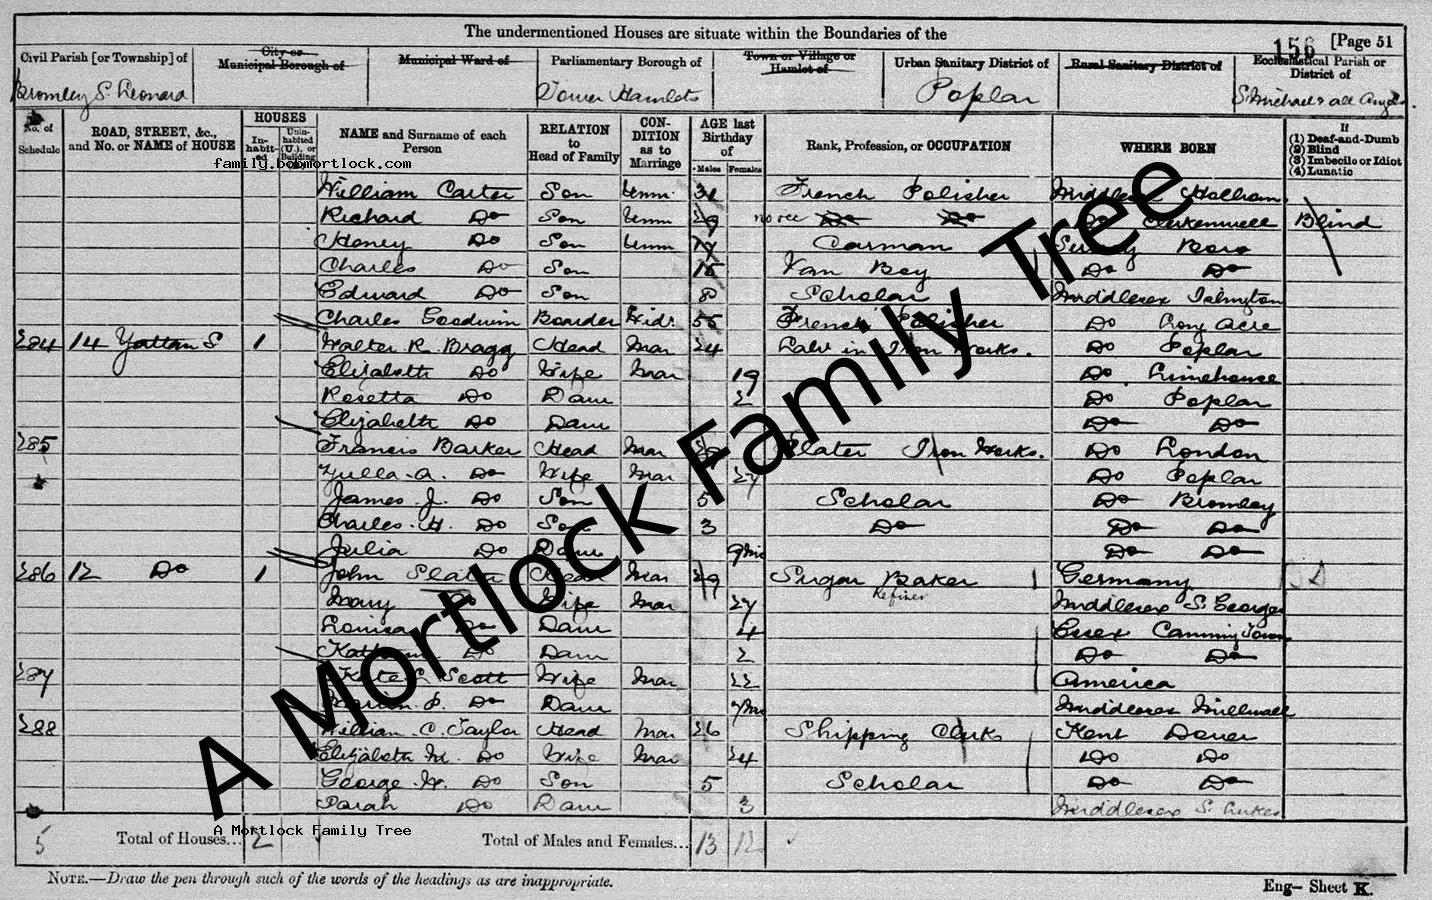 The undermentioned Houses are situate within the Boundaries of the
156 [Page 51
Civil Parish [or Township] of
City or Municipal Borough of
Municipal Ward of
Parliamentary Borough of
Town or Village or Hamlet of
Urban Sanitary District of
Rural Sanitary District of
Ecclesiastical Parish or District of
Bromley S. Leonard Tower Hamlets Poplar St Michael & all Angels
No. of Schedule
ROAD, STREET, &c., and No. or NAME of HOUSE
HOUSES
In-habit-ed
Unin-habited (U.), or Building
NAME and Surname of each Person
RELATION to Head of Family
CON-DITION as to Marriage
AGE last Birthday of
Males Females
Rank, Profession, or OCCUPATION
WHERE BORN
If
(1) Deaf-and-Dumb
(2) Blind
(3) Imbecile or Idiot
(4) Lunatic
family.bobmortlock.com
William Carter Son Unm. 31 French Polisher
Richard Do Son Unm 29 no occ Do Do Do Clerkenwell Blind
Henry Do Son Unm Carman Surrey Boro
Charles Do Son 15 Van Boy Do Do
Edward Do Son 8 Scholar Middlesex Islington
Charles Goodwin Boarder Widr 55 French Polisher Do Long Acre
284 14 Yattan S 1 Walter R Bragg Head Mar 24 Labr in Iron Works. Do Poplar
Elizabeth Do Wife Mar 19 Do Limehouse
Rosetta Do Daur 2 Do Poplar
Elizabeth Do Daur Do Do
285 Francis Barker Head Mar Plater Iron Works. Do London
Do Wife Mar 27 Do Poplar
James J. Do Son 5 Scholar Do Bromley
Charles H. Do Son 3 Do Do Do
Julia Do Daur 9 mo Do Do
286 12 Do 1 John Slater Head Mar 29 Sugar Baker Germany
Refiner
Mary Do Wife Mar 27 Middlesex S. Georges
Louisa Do Daur 4 Essex Canning Town
Do Daur 2 Do Do
287 Kate L Scott Wife Mar 22 America
Do Daur 7 mo Middlesex Millwall
288 William C. Taylor Head Mar 26 Shipping Clerk Kent Dover
Elizabeth M. Do Wife Mar 24 Do Do
George W. Do Son 5 Scholar Do Do
Sarah Do Daur 3 Middlesex S. Lukes
A Mortlock Family Tree
A Mortlock Family Tree
5 Total of Houses... 2 Total of Males and Females... 13 12
NOTE.—Draw the pen through such of the words of the headings as are inappropriate.
Eng— Sheet K.